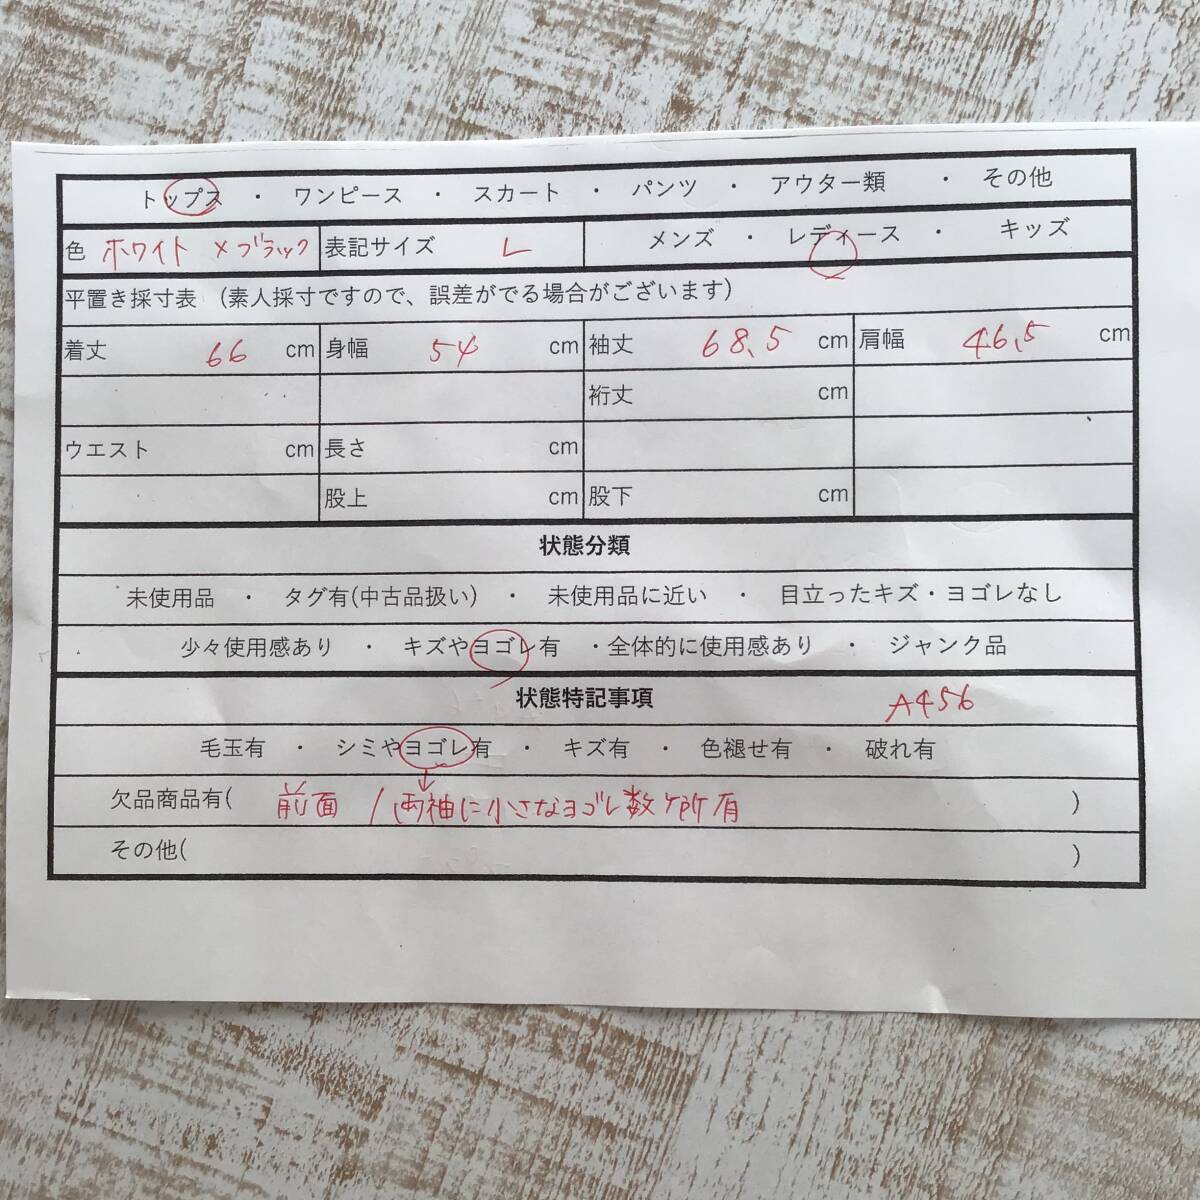 トップス ・ ワンピース ・ スカート ・ パンツ ・ アウター類 ・ その他
色 ホワイト × ブラック 表記サイズ L メンズ ・ レディース ・ キッズ
平置き採寸表 (素人採寸ですので、誤差がでる場合がございます)
着丈 66 cm 身幅 54 cm 袖丈 68.5 cm 肩幅 46.5 cm
裄丈 cm
ウエスト cm 長さ cm
股上 cm 股下 cm
状態分類
未使用品 ・ タグ有(中古品扱い) ・ 未使用品に近い ・ 目立ったキズ・ヨゴレなし
少々使用感あり ・ キズやヨゴレ有 ・全体的に使用感あり ・ ジャンク品
状態特記事項 A456
毛玉有 ・ シミやヨゴレ有 ・ キズ有 ・ 色褪せ有 ・ 破れ有
欠品商品有( 前面 / 両袖に小さなヨゴレ数ヶ所有 )
その他( )